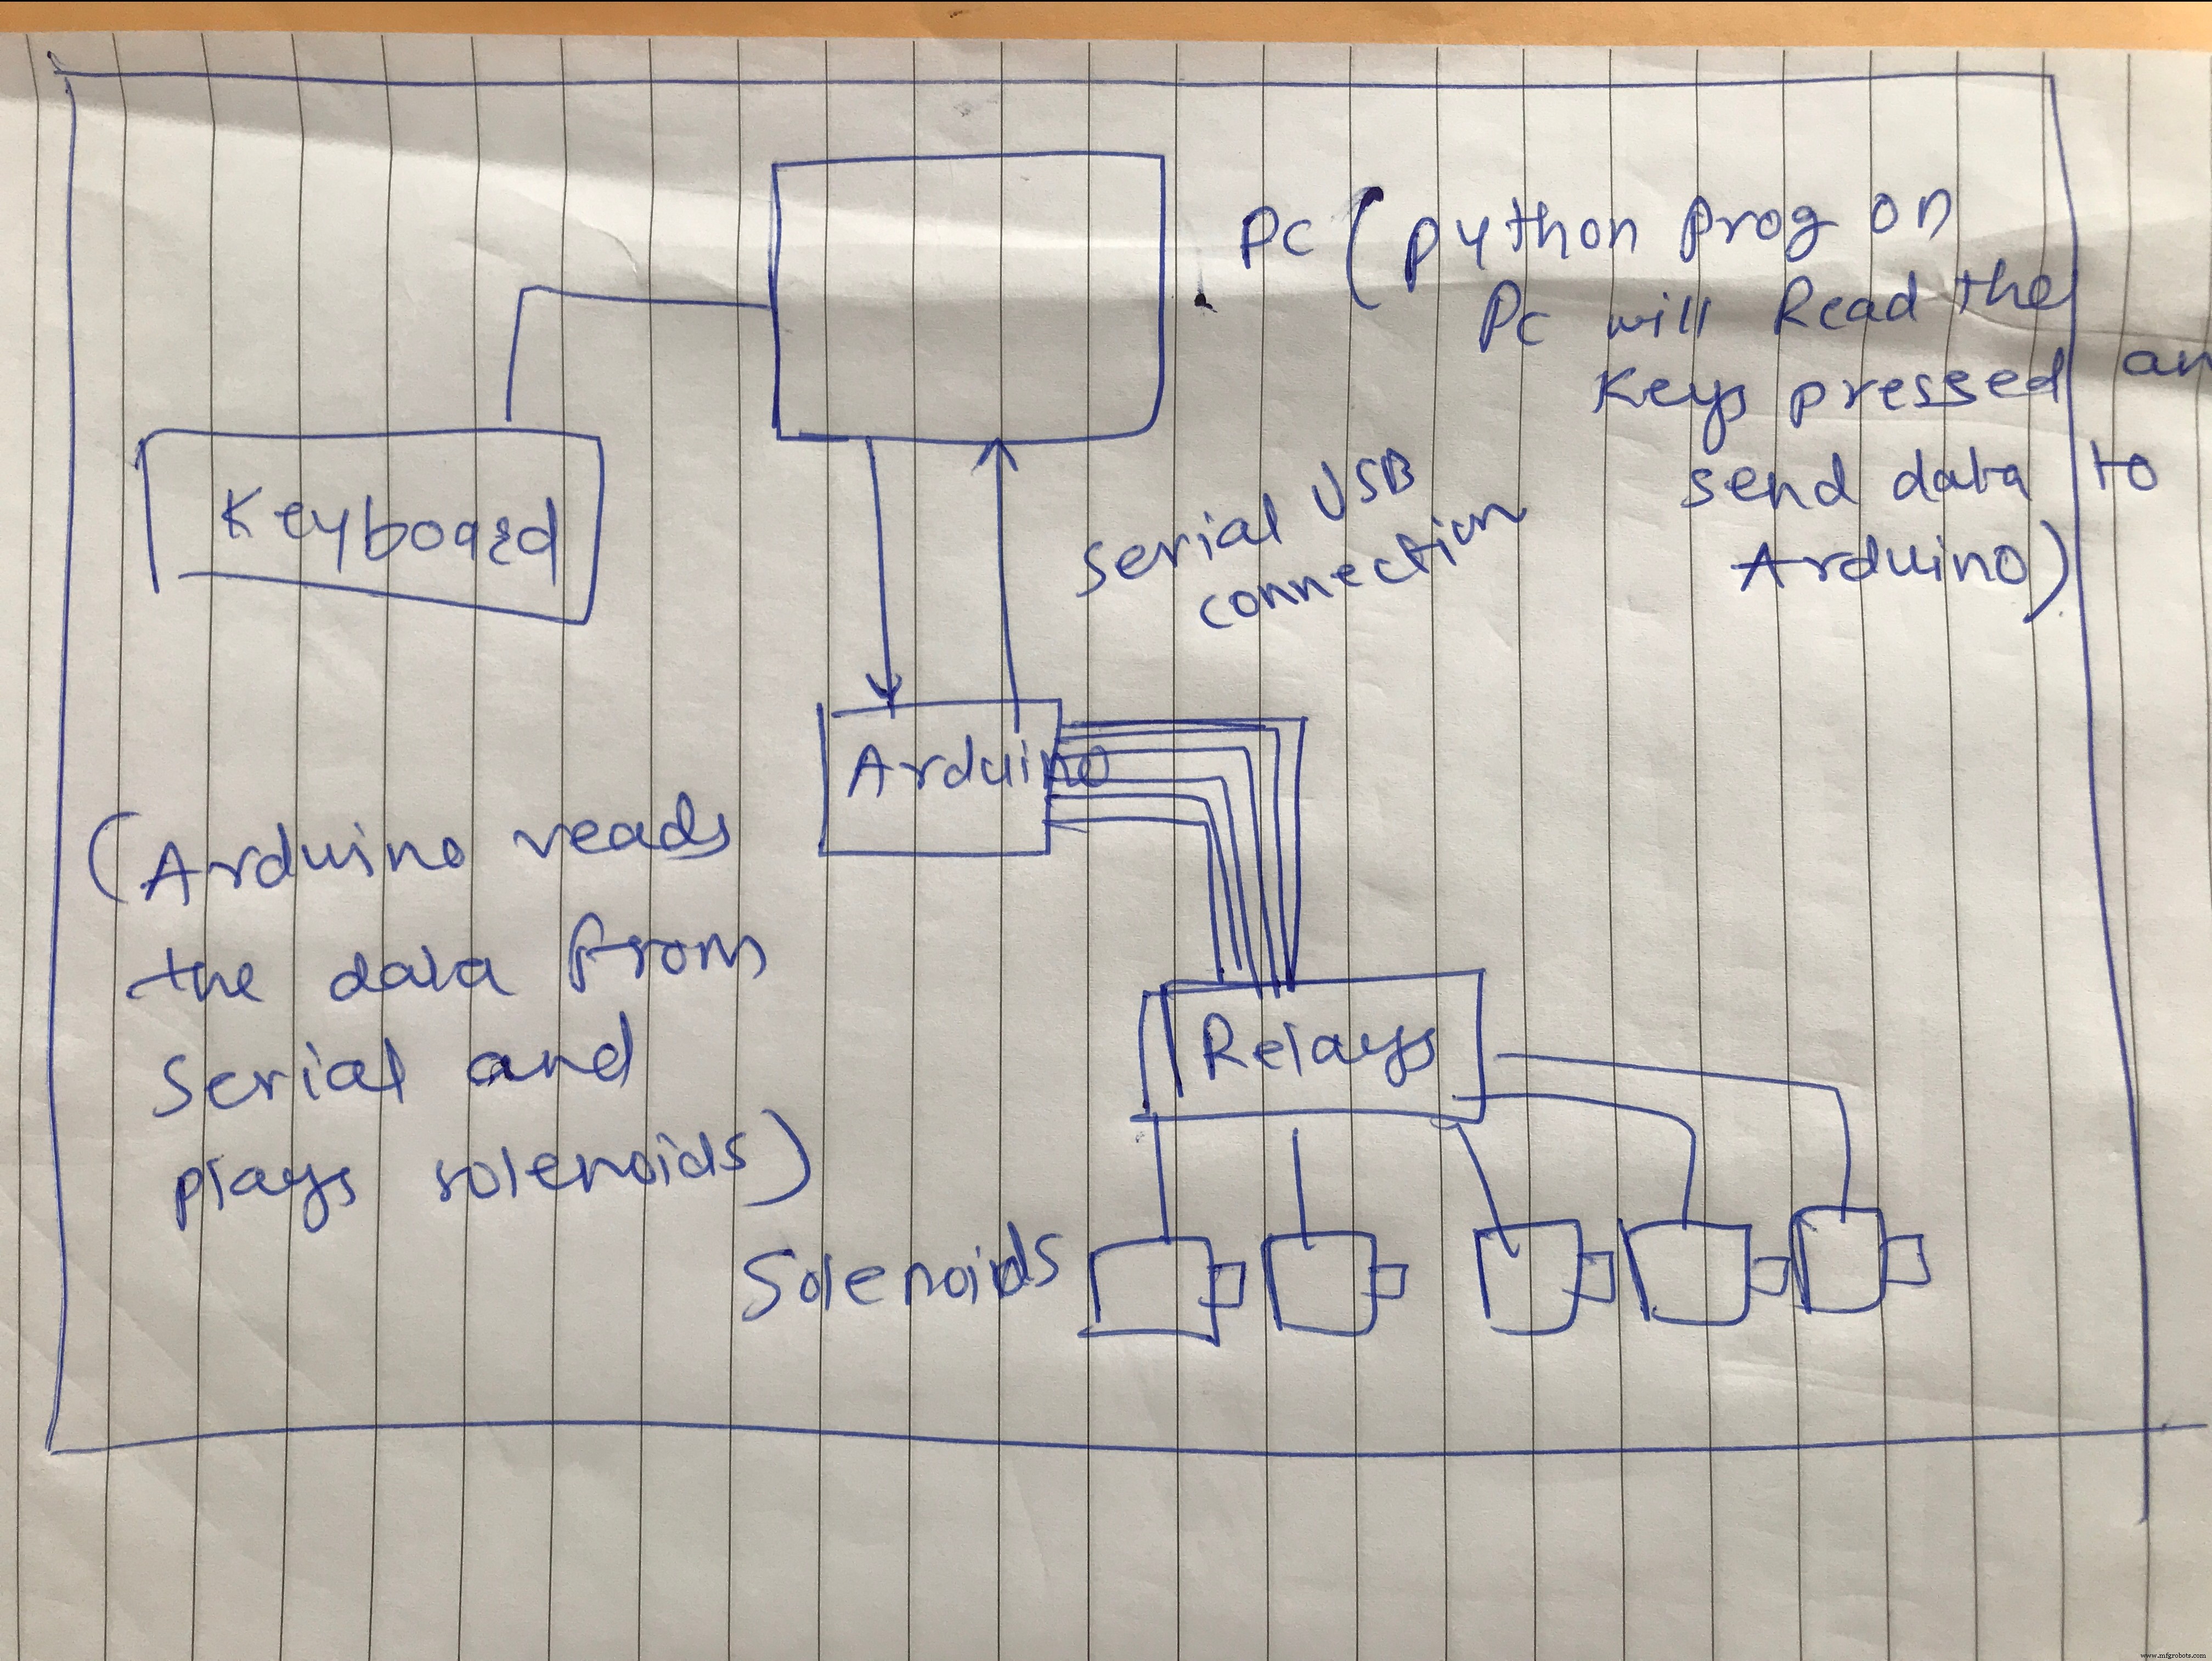 PC (python prog on
PC will Read the
Keys pressed an
send data to
Arduino)
Keyboard
serial USB
connection
Arduino
(Arduino reads
the data from
serial and
plays solenoids)
Relays
Solenoids
www.mfgrobots.com